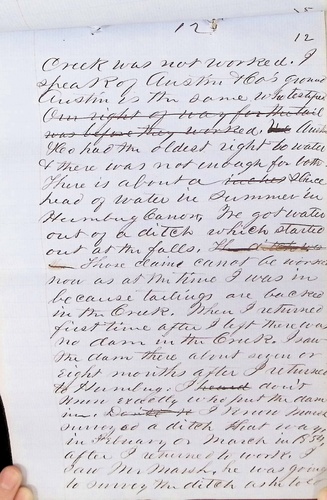 12
12
Creek was not worked. I
speak of Austin & Co's ground
Austin is the same who testified
Our right of way for the tail
was before they worked. Austin
& Co had the oldest right to water
& there was not enough for both
There is about a inches Sluice
head of water in Summer in
Humbug Canon, I've got water
out of a ditch which started
out at the falls.
Those claims cannot be worked
now as at the time I was in
because tailings are backed
in the Creek. When I returned
first time after I left there was
no dam in the Creek. I saw
the dam there about seven or
eight months after I returned
to Humbug. I heard don't
know exactly who put the dam
in. I know Marsh
surveyed a ditch that way
in February or March in 1854
after I returned to work. I
saw Mr Marsh, he was going
to survey the ditch as he told